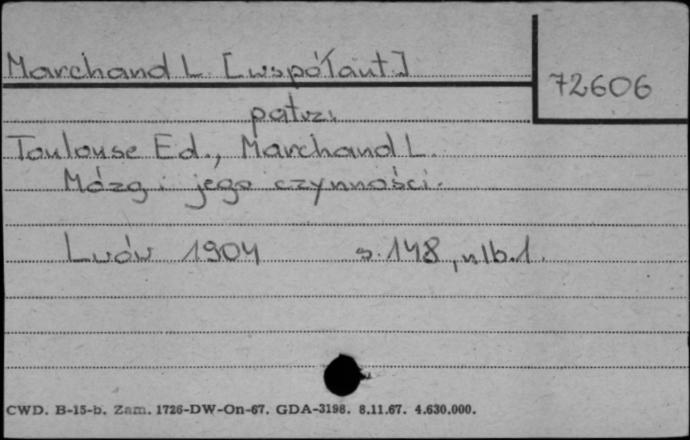 Marchand L. [współaut.]
72606
patrz:
Toulouse Ed., Marchand L.
Mózg i jego czynności.
Lwów 1904 s. 148, nlb. 1.
CWD. B-15-b. Zam. 1726-DW-On-67. GDA-3198. 8.11.67. 4.630.000.